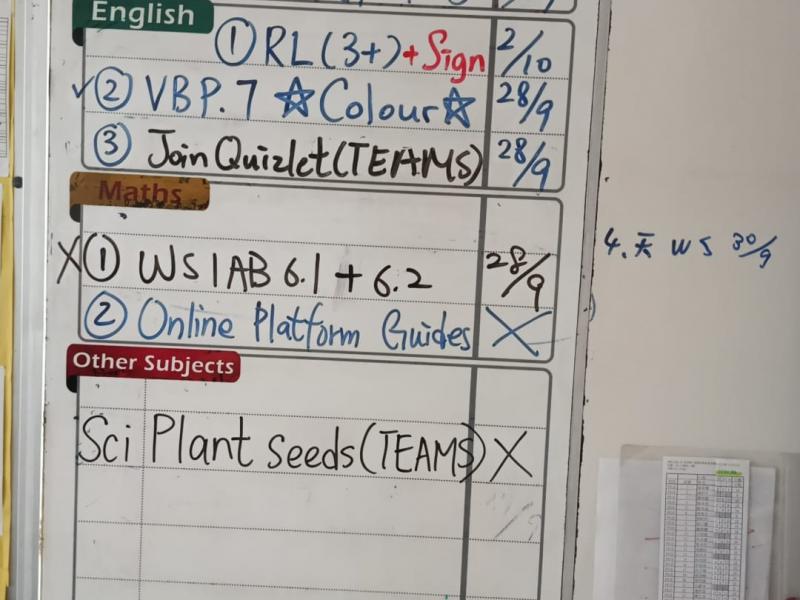 English
① RL (3+) + Sign 2/10
✓② VB P.7 ☆Colour☆ 28/9
③ Join Quizlet (TEAMS) 28/9
Maths
X① WS 1AB 6.1 + 6.2 28/9
② Online Platform Guides X
4. 天 WS 30/9
Other Subjects
Sci Plant seeds (TEAMS) X